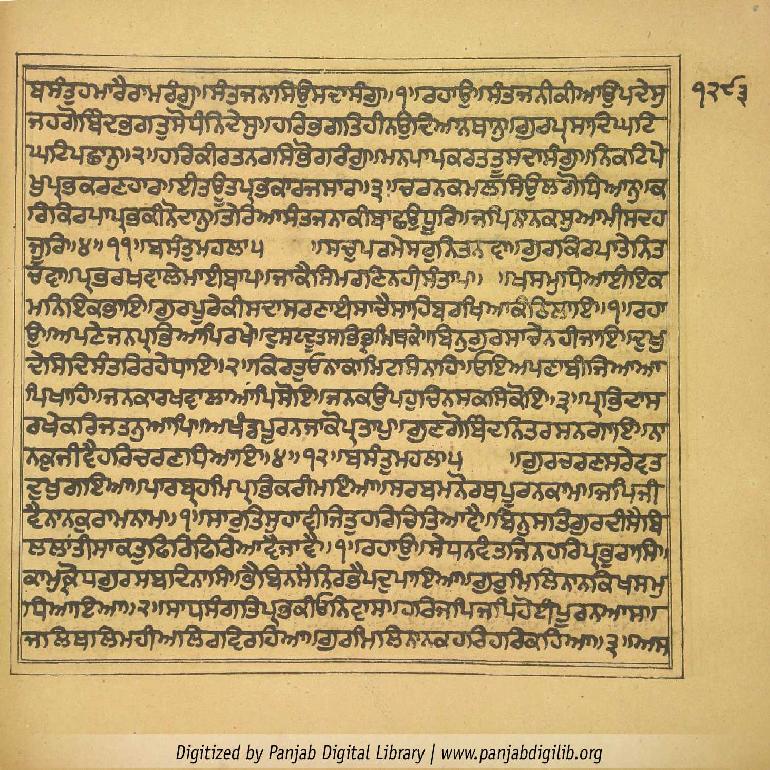 ਬਸੰਤੁਹਮਾਰੈਰਾਮਰੰਗੁ॥ਸੰਤਜਨਾਸਿਉਸਦਾਸੰਗੁ॥੧॥ਰਹਾਉ॥ਸੰਤਜਨੀਕੀਆਉਪਦੇਸੁ ੧੨੯੩
ਜਹਗੋਬਿੰਦਭਗਤੁਸੋਧੰਨਿਦੇਸੁ॥ਹਰਿਭਗਤਿਹੀਨਉਦਿਆਨਥਾਨੁ॥ਗੁਰਪ੍ਰਸਾਦਿਘਟਿ
ਘਟਿਪਛਾਨੁ॥੨॥ਹਰਿਕੀਰਤਨਰਸਭੋਗਰੰਗੁ॥ਮਨਪਾਪਕਰਤਤੂਸਦਾਸੰਗੁ॥ਨਿਕਟਿਪੇ
ਖੁਪ੍ਰਭੁਕਰਣਹਾਰ॥ਈਤਊਤਪ੍ਰਭਕਾਰਜਸਾਰ॥੩॥ਚਰਨਕਮਲਸਿਉਲਗੋਧਿਆਨੁ॥ਕ
ਰਿਕਿਰਪਾਪ੍ਰਭਿਕੀਨੋਦਾਨੁ॥ਤੇਰਿਆਸੰਤਜਨਾਕੀਬਾਛਉਧੂਰਿ॥ਜਪਿਨਾਨਕਸੁਆਮੀਸਦਹ
ਜੂਰਿ॥੪॥੧੧॥ਬਸੰਤੁਮਹਲਾ੫ ॥ਸਚੁਪਰਮੇਸਰੁਨਿਤਨਵਾ॥ਗੁਰਕਿਰਪਾਤੇਨਿਤ
ਚਵਾ॥ਪ੍ਰਭਰਖਵਾਲੇਮਾਈਬਾਪ॥ਜਾਕੈਸਿਮਰਣਿਨਹੀਸੰਤਾਪ॥ ॥ਖਸਮੁਧਿਆਈਇਕ
ਮਨਿਇਕਭਾਇ॥ਗੁਰਪੂਰੇਕੀਸਦਾਸਰਣਾਈਸਾਚੈਸਾਹਿਬਰਖਿਆਕੰਠਿਲਾਇ॥੧॥ਰਹਾ
ਉ॥ਅਪਣੇਜਨਪ੍ਰਭਿਆਪਿਰਖੇ॥ਦੁਸਟਦੂਤਸਭਿਭ੍ਰਮਿਥਕੇ॥ਬਿਨੁਗੁਰਸਾਚੇਨਹੀਜਾਇ॥ਦੁਖੁ
ਦੇਸਦਿਸੰਤਰਿਰਹੇਧਾਇ॥੨॥ਕਿਰਤੁਓਨਾਕਾਮਿਟਸਿਨਾਹਿ॥ਓਇਅਪਣਾਬੀਜਿਆਆ
ਪਿਖਾਹਿ॥ਜਨਕਾਰਖਵਾਲਾਆਪਿਸੋਇ॥ਜਨਕਉਪਹੁਚਿਨਸਕਸਿਕੋਇ॥੩॥ਪ੍ਰਭਿਦਾਸ
ਰਖੇਕਰਿਜਤਨੁਆਪਿ॥ਅਖੰਡਪੂਰਨਜਾਕੋਪ੍ਰਤਾਪੁ॥ਗੁਣਗੋਬਿੰਦਨਿਤਰਸਨਗਾਇ॥ਨਾ
ਨਕੁਜੀਵੈਹਰਿਚਰਣਧਿਆਇ॥੪॥੧੨॥ਬਸੰਤੁਮਹਲਾ੫ ॥ਗੁਰਚਰਣਸਰੇਵਤ
ਦੁਖੁਗਇਆ॥ਪਾਰਬ੍ਰਹਮਿਪ੍ਰਭਿਕਰੀਮਇਆ॥ਸਰਬਮਨੋਰਥਪੂਰਨਕਾਮ॥ਜਪਿਜੀ
ਵੈਨਾਨਕੁਰਾਮਨਾਮ॥੧॥ਸਾਰੁਤਿਸੁਹਾਵੀਜਿਤੁਹਰਿਚਿਤਿਆਵੈ॥ਬਿਨੁਸਤਿਗੁਰਦੀਸੈਬਿ
ਲਲਾਂਤੀਸਾਕਤੁਫਿਰਿਫਿਰਿਆਵੈਜਾਵੈ॥੧॥ਰਹਾਉ॥ਸੇਧਨਵੰਤਜਿਨਹਰਿਪ੍ਰਭੁਰਾਸਿ॥
ਕਾਮਕ੍ਰੋਧਗੁਰਸਬਦਿਨਾਸਿ॥ਭੈਬਿਨਸੇਨਿਰਭੈਪਦੁਪਾਇਆ॥ਗੁਰਮਿਲਿਨਾਨਕਿਖਸਮੁ
ਧਿਆਇਆ॥੨॥ਸਾਧਸੰਗਤਿਪ੍ਰਭਿਕੀਓਨਿਵਾਸ॥ਹਰਿਜਪਿਜਪਿਹੋਈਪੂਰਨਆਸ॥
ਜਲਿਥਲਿਮਹੀਅਲਿਰਵਿਰਹਿਆ॥ਗੁਰਮਿਲਿਨਾਨਕਹਰਿਹਰਿਕਹਿਆ॥੩॥ਅਸ
Digitized by Panjab Digital Library | www.panjabdigilib.org